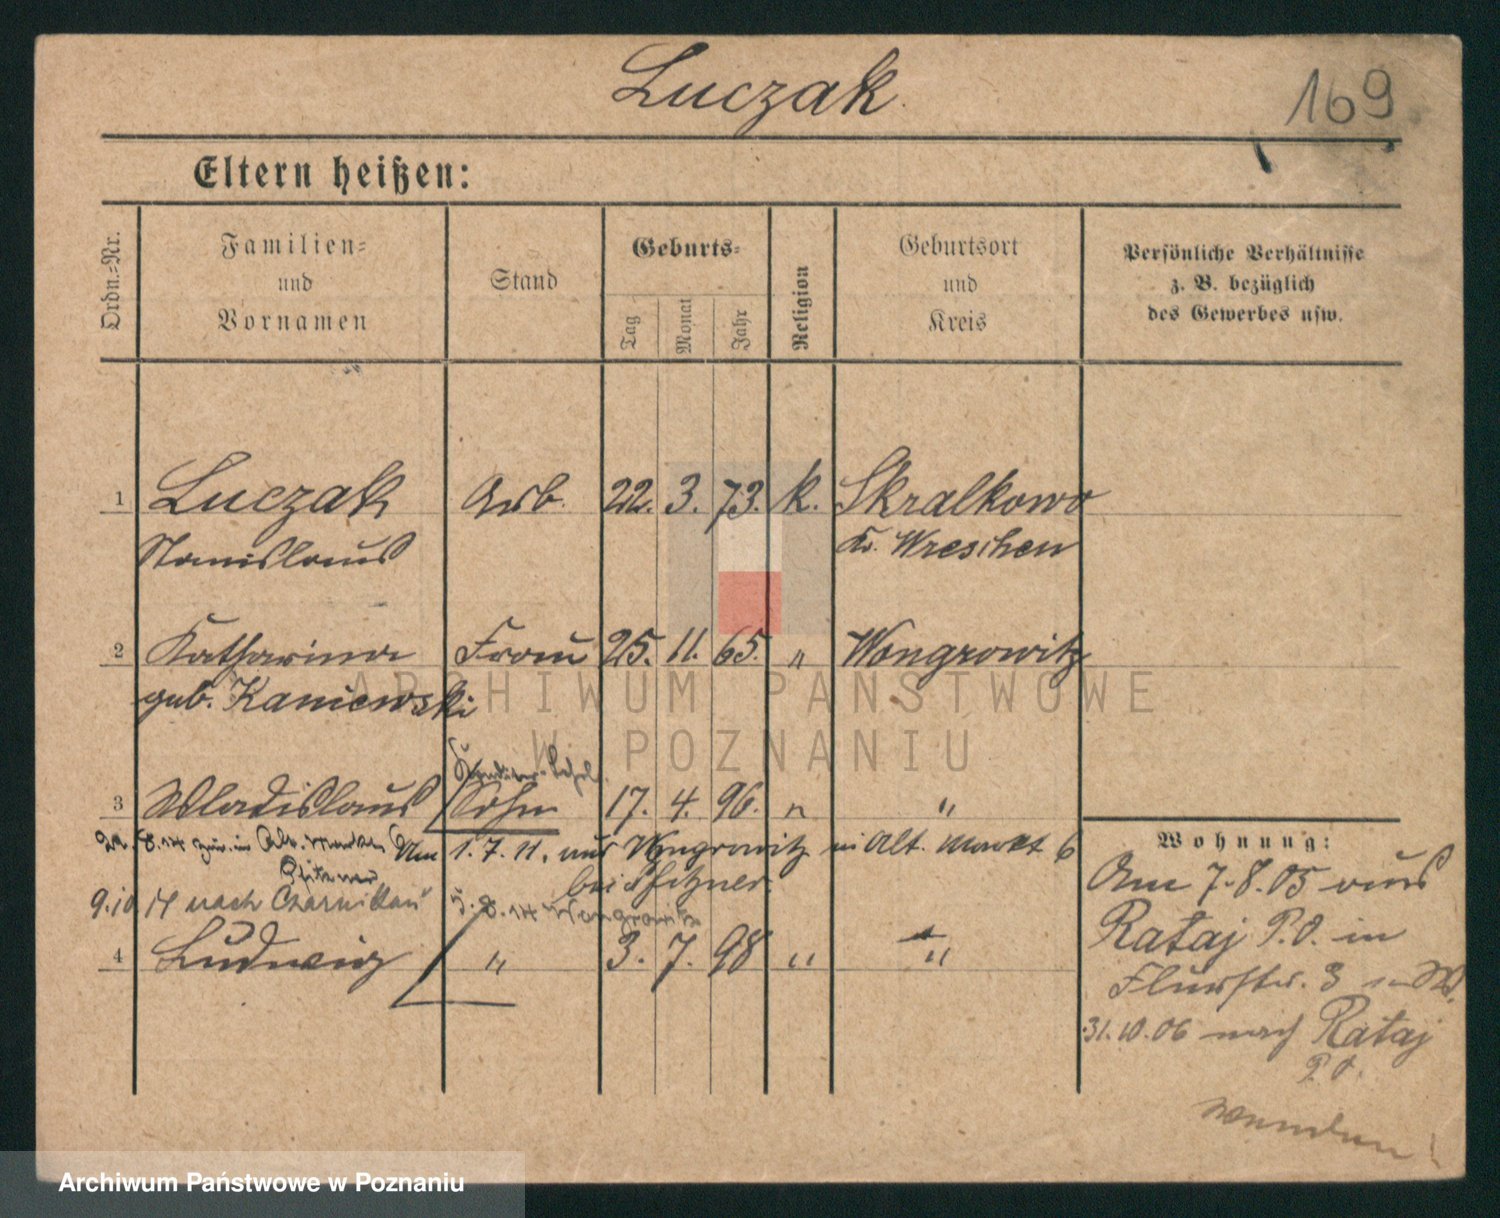 Luczak.
169
Eltern heißen:
Ordn.=Nr.
Familien=
und
Vornamen
Stand
Geburts=
Tag
Monat
Jahr
Religion
Geburtsort
und
Kreis
Persönliche Verhältnisse
z. B. bezüglich
des Gewerbes usw.
1 Luczak Arb. 22. 3. 73. k. Skralkowo
Stanislaus Kr. Wreschen
2 Katharina Frau 25. 11. 65. " Wongrowitz
geb. Kaniewski
3 Wladislaus Sohn 17. 4. 96. " "
8.14 zur. in Alt. Markt
Am 1.7.11. aus Wongrowitz in Alt. Markt 6
bei Pfitzner
Pfitzner
9.10 14 nach Czarnikau
5.8.14 Wongrowitz
4 Ludwig " 3. 7. 98 " "
Wohnung:
Am 7.8.05 aus
Rataj P.O. in
Flurstr. 3
31.10.06 nach Rataj
P.O.
wenden!
ARCHIWUM PAŃSTWOWE
W POZNANIU
Archiwum Państwowe w Poznaniu